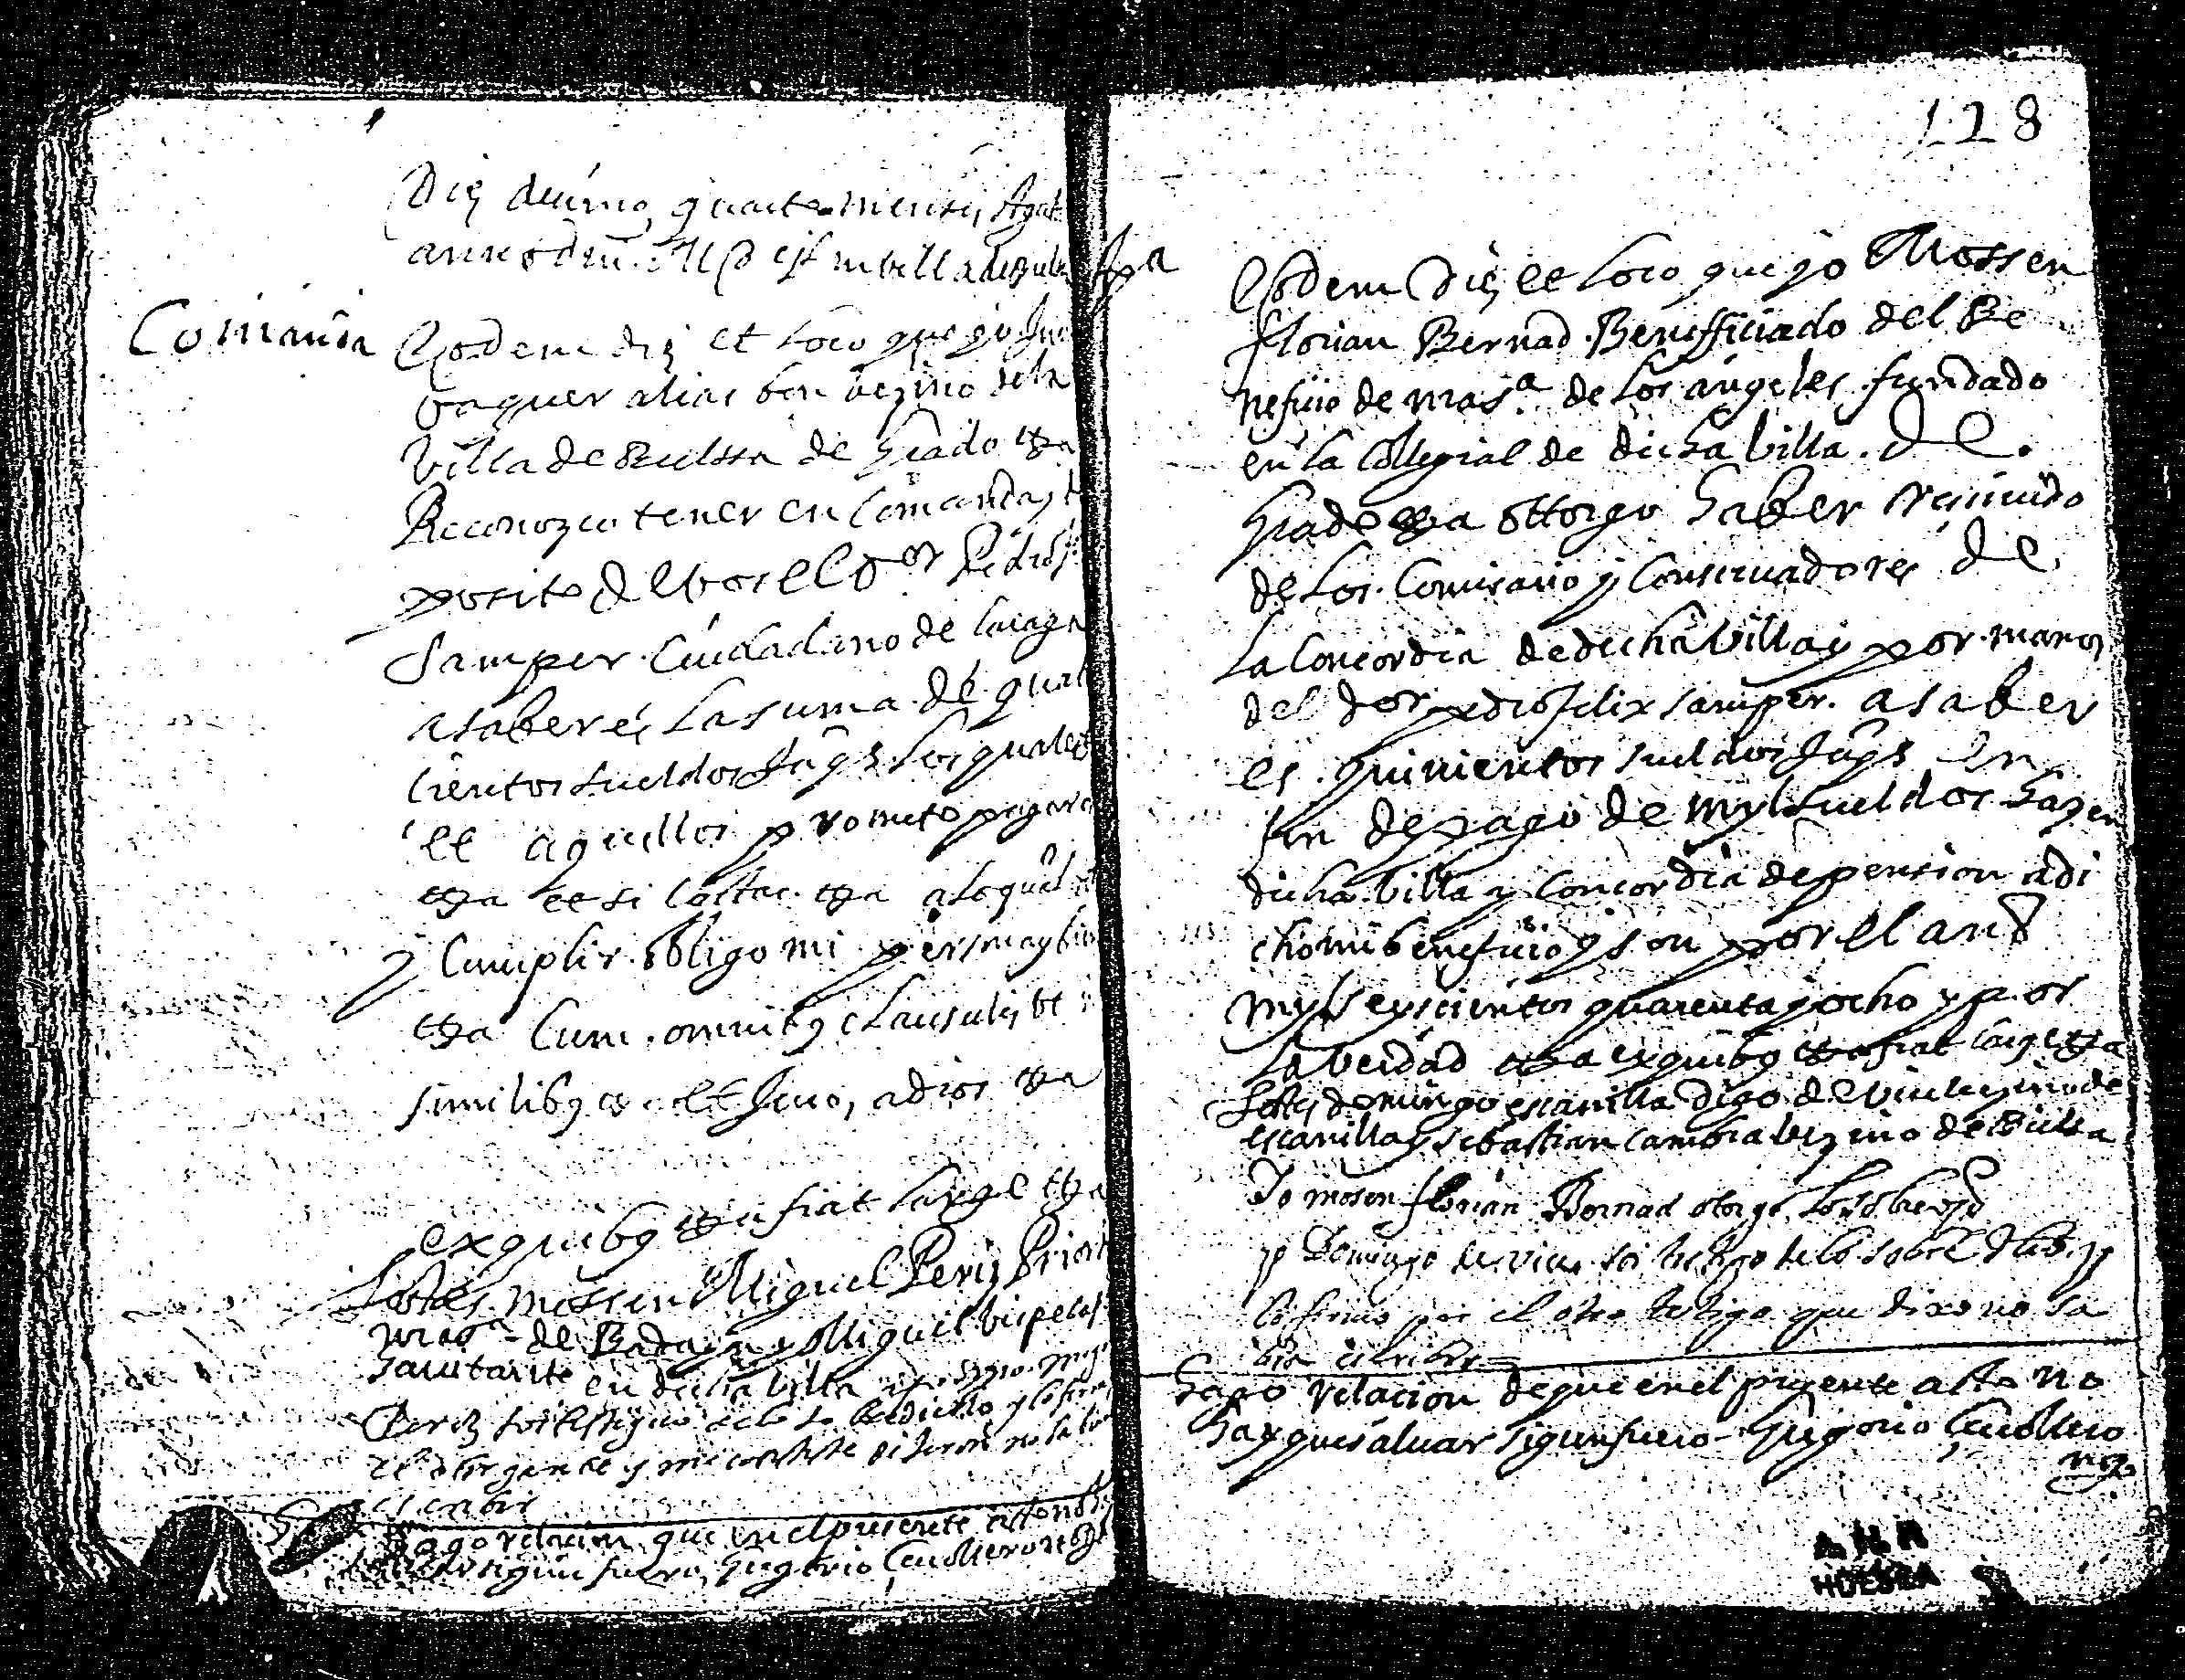 Die decimo quarto mensis
anno
Comanda
Eodem die et loco que yo
baquer alias bon vezino dela
Villa de Buelssa de Grado etta
Reconozco tener en Comanda y de
posito de vos el Dor Pedro
Samper Ciudadano de Caragª
asaber es La suma de quat
cientos sueldos Jaqs Los quales
et aquellos prometo pagar
etta et si Contra etta alo qual
y Cumplir obligo mi persona y bie
etta Cum omnibus clausulis
similibus et Juro a dios etta
ex quibus etta fiat Large etta
Testes mossen Miguel Periz Prior
nra Sª de Badayn y Miguel
havitante en dicha villa
Periz soi testigo de lo sobredicho y lo
el otorgante y me dixeron no sa
escribir
Hago relacion que en el presente acto no
segun fuero, Gregorio
128
Eodem Die et Loco que yo Mossen
Florian Bernad Benefficiado del Be
neficio de nra Sª de los angeles fundado
en la Collegial de dicha billa. de.
Grado etta ottorgo haber recivido
de los Comisario y Conseruadores de
La Concordia de dicha billa y por manos
del dor pedro felix samper. a saber
es quinientos sueldos Jaqs en
fin de pago de myl sueldos hazen
dicha billa y Concordia de pension a di
cho mi beneficio y son por el año
myl seyscientos quarenta y ocho y por
La berdad etta ex quibus etta fiat Large etta
Testes domingo escanilla digo de biu vezino de
escanilla y sebastian Cambra vezino de Bielsa
Yo mosen florian Bernad otorgo lo sobredho
y Domingo de viu soi testigo de lo sobredho y
lo firmo por el otro testigo que dixo no sa
bia escribir
Hago relacion de que en el presente acto no
hay que salvar segun fuero Gregorio
A H P
HUESCA